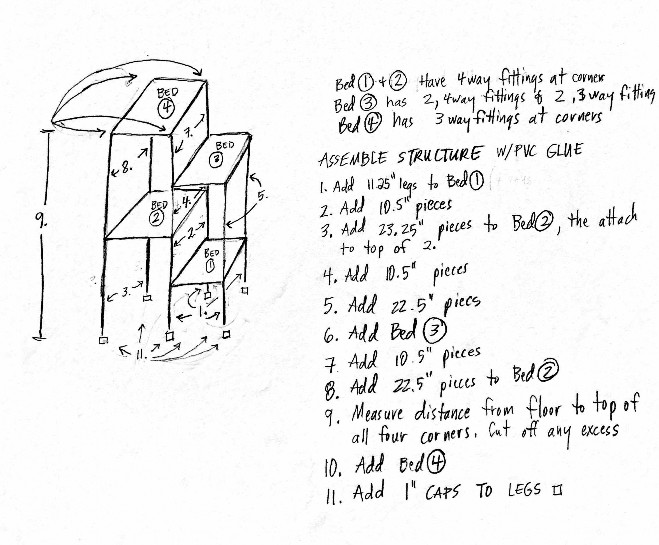 Bed ① & ② Have 4way fittings at corner
Bed ③ has 2, 4way fittings & 2, 3 way fitting
Bed ④ has 3 way fittings at corners
ASSEMBLE STRUCTURE W/PVC GLUE
1. Add 11.25" legs to Bed ①
2. Add 10.5" pieces
3. Add 23.25" pieces to Bed ②, the attach
to top of 2.
4. Add 10.5" pieces
5. Add 22.5" piecs
6. Add Bed ③
7. Add 10.5" pieces
8. Add 22.5" pieces to Bed ②
9. Measure distance from floor to top of
all four corners. Cut off any excess
10. Add Bed ④
11. Add 1" CAPS TO LEGS □
BED
④
7.
BED
③
8.
9.
4.
5.
BED
②
2.
BED
①
3.
1.
11.